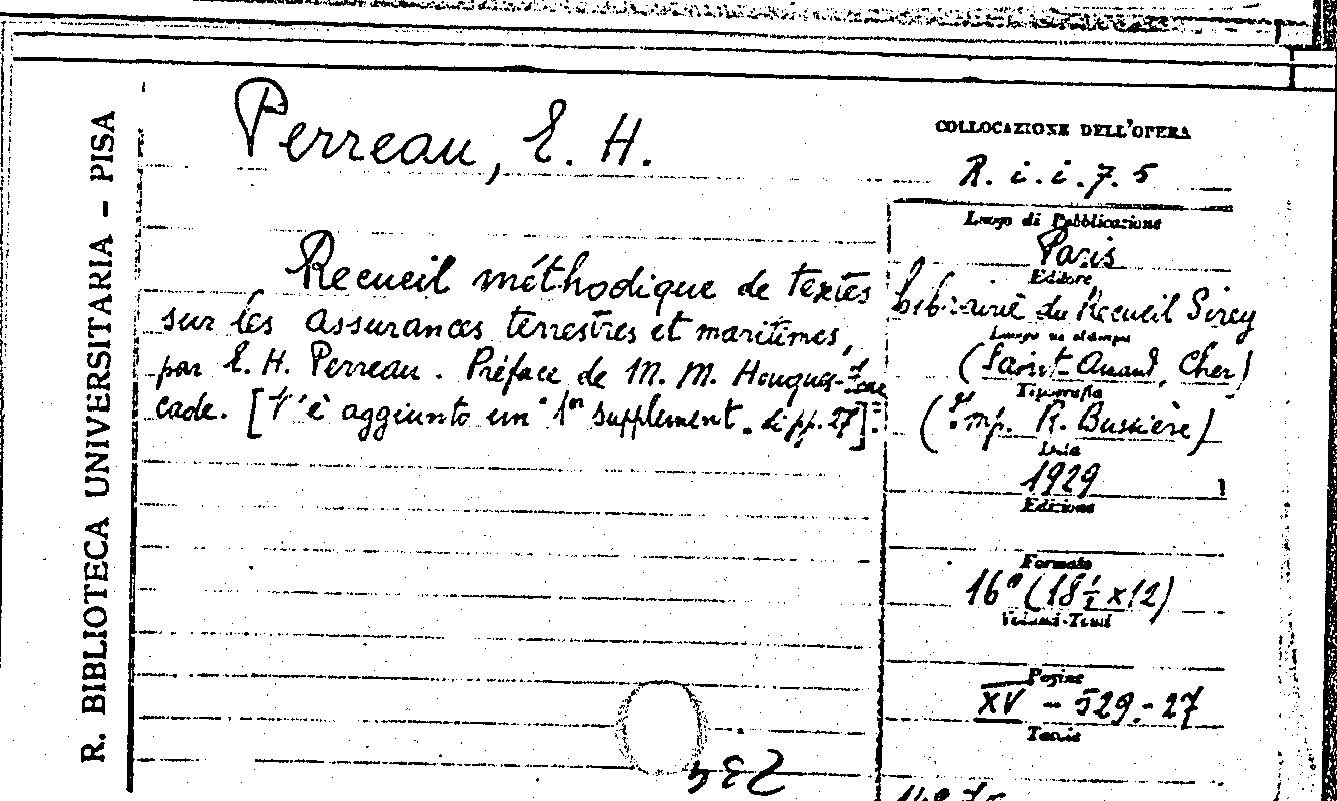 R. BIBLIOTECA UNIVERSITARIA - PISA
Perreau, E. H.
Recueil méthodique de textes
sur les assurances terrestres et maritimes,
par E. H. Perreau. Préface de M. M. Houques-Four
cade. [V'è aggiunto un 1er supplement. di pp. 27].
COLLOCAZIONE DELL'OPERA
R. i. i. 7. 5
Luogo di Pubblicazione
Paris
Editore
Librairie du Recueil Sirey
Luogo di stampa
(Saint-Amand, Cher)
Tipografia
(Imp. R. Bussière)
Data
1929
Edizione
Formato
16° (18½ x 12)
Volumi-Tomi
Pagine
XV - 529.- 27
Tavole